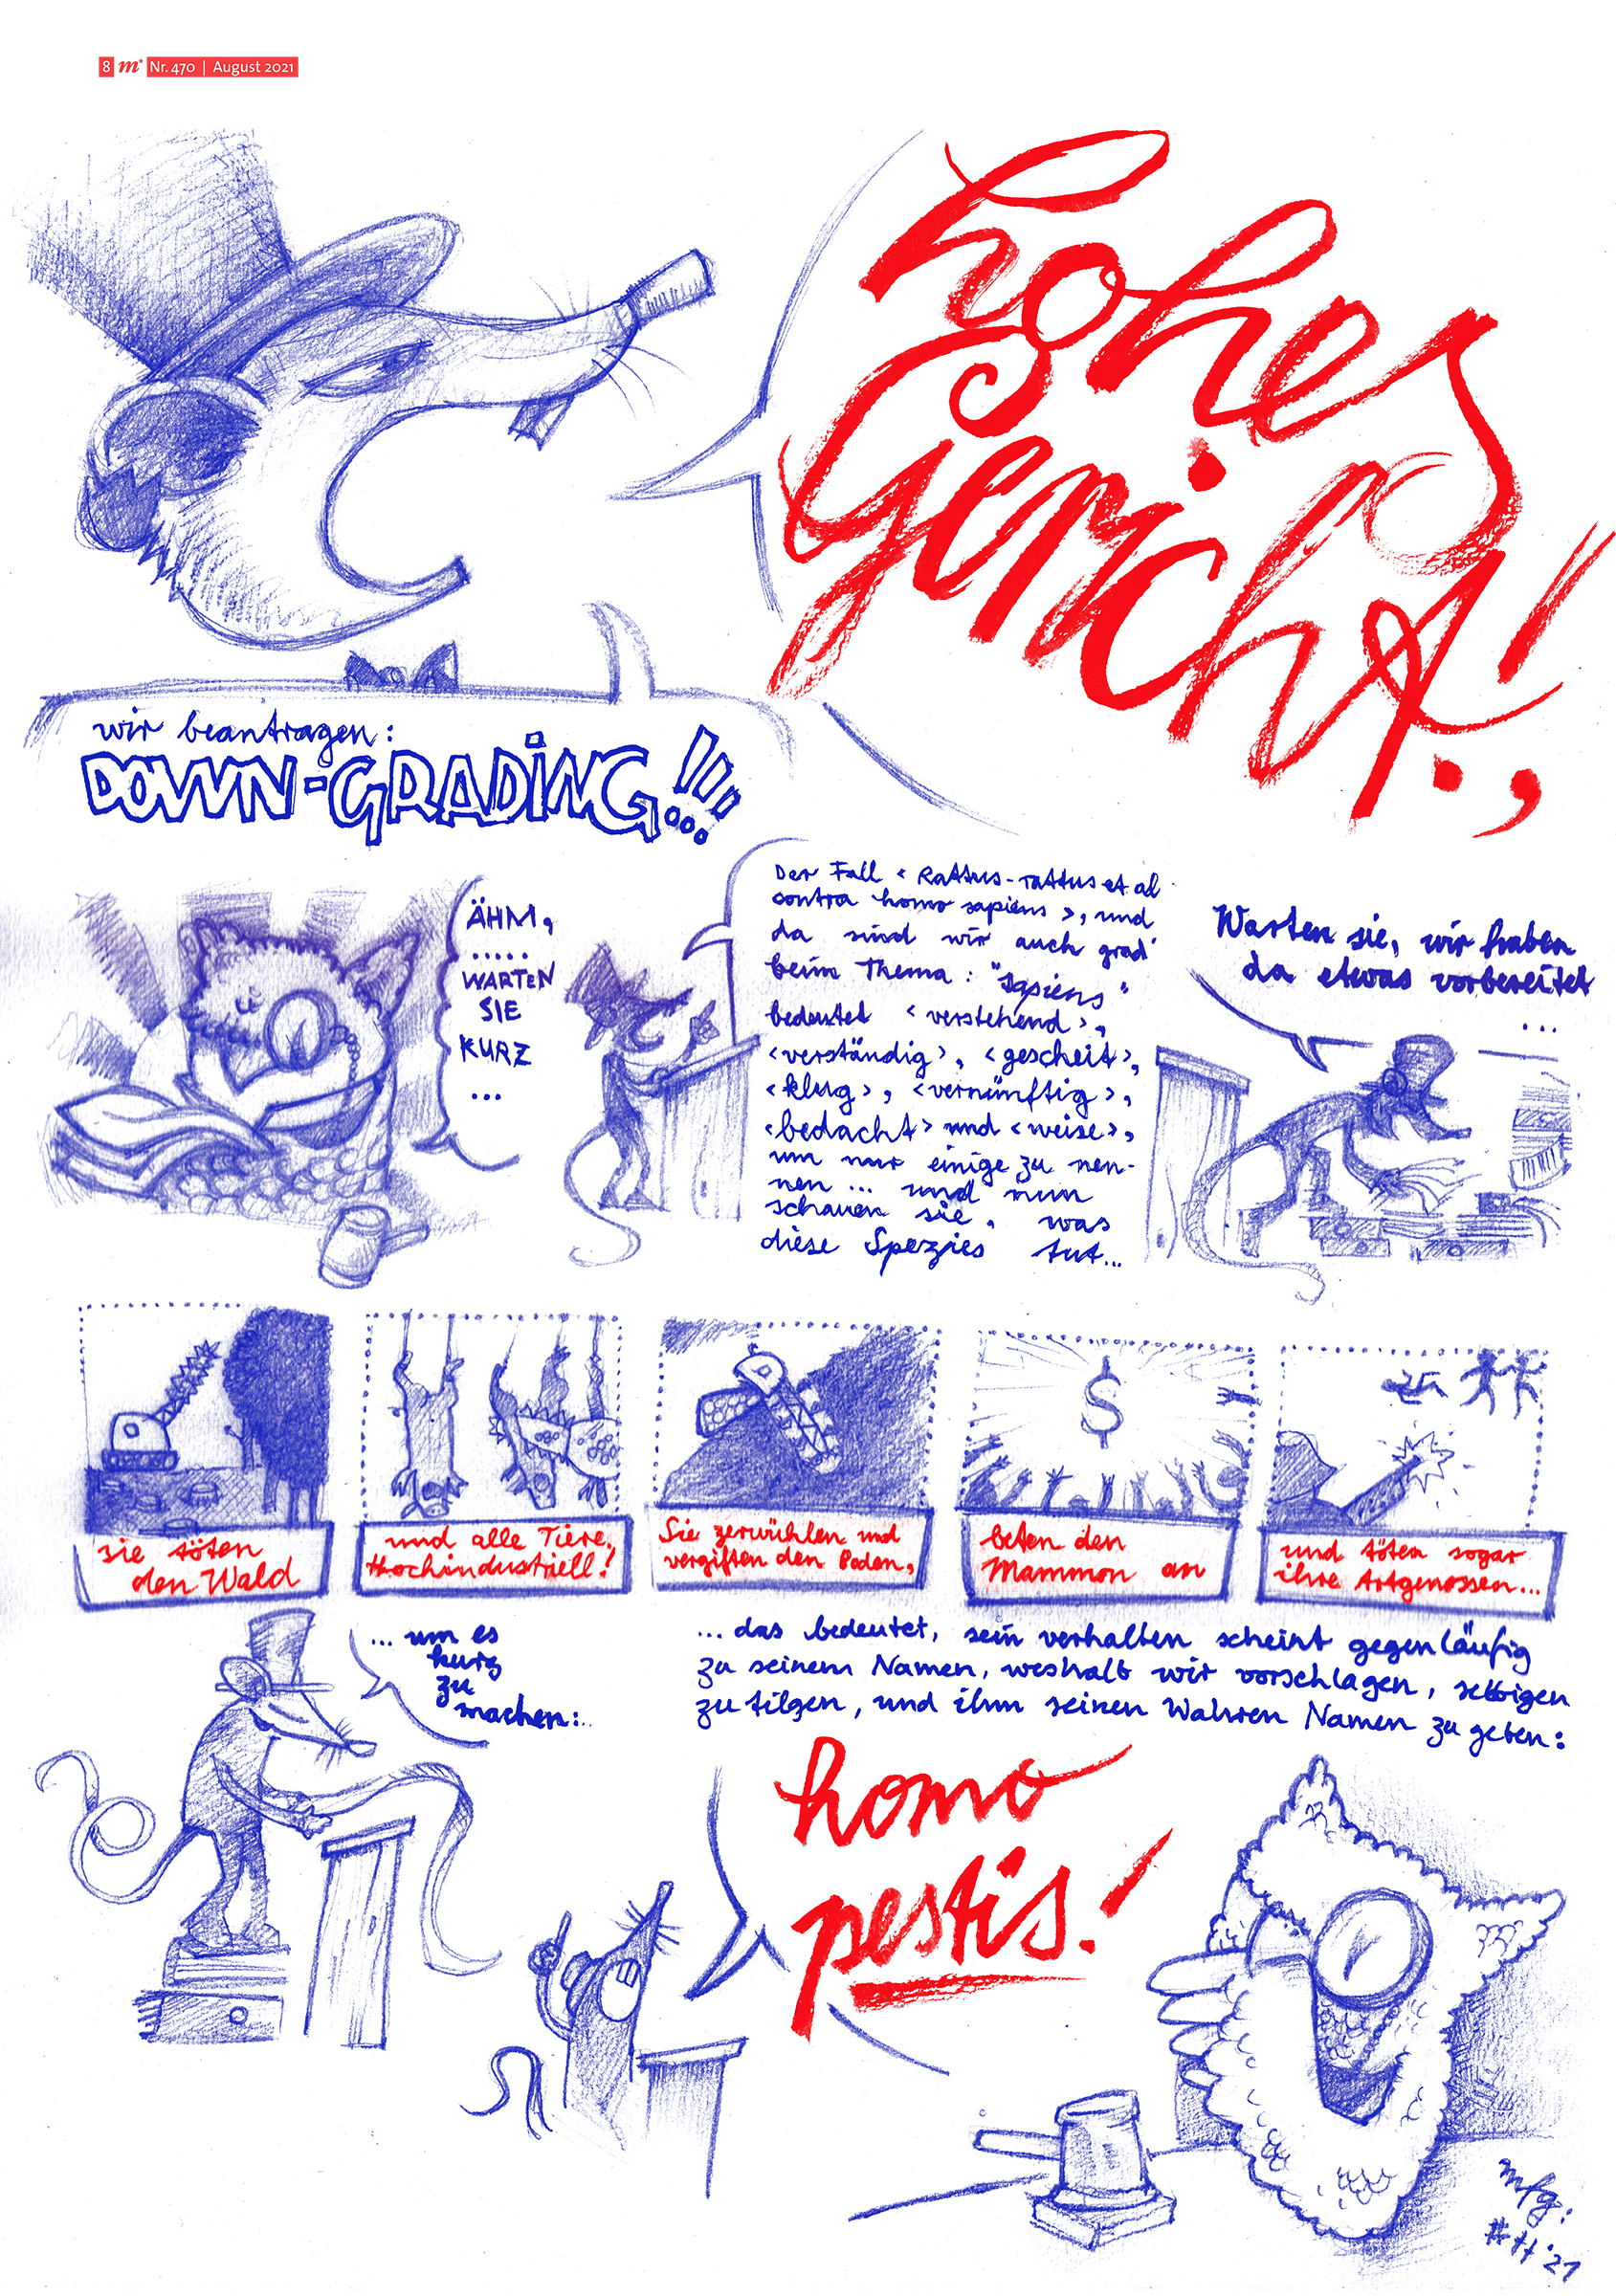 8 m* Nr. 470 | August 2021
hohes
Gericht!,
wir beantragen:
DOWN-GRADING!!!
ÄHM,
.....
WARTEN
SIE
KURZ
...
Der Fall ‹Rattus-rattus et al
contra homo sapiens›, und
da sind wir auch grad'
beim Thema: "sapiens"
bedeutet ‹verstehend›,
‹verständig›, ‹gescheit›,
‹klug›, ‹vernünftig›,
‹bedacht› und ‹weise›,
um nur einige zu nen-
nen ... und nun
schauen sie, was
diese Spezies tut...
Warten sie, wir haben
da etwas vorbereitet
...
sie töten
den Wald
und alle Tiere,
Hochindustriell!
Sie zerwühlen und
vergiften den Boden,
beten den
Mammon an
und töten sogar
ihre Artgenossen...
... um es
kurz
zu
machen:..
... das bedeutet, sein verhalten scheint gegenläufig
zu seinem Namen, weshalb wir vorschlagen, selbigen
zu tilgen, und ihm seinen Wahren Namen zu geben:
homo
pestis!
mfg:
#H'21